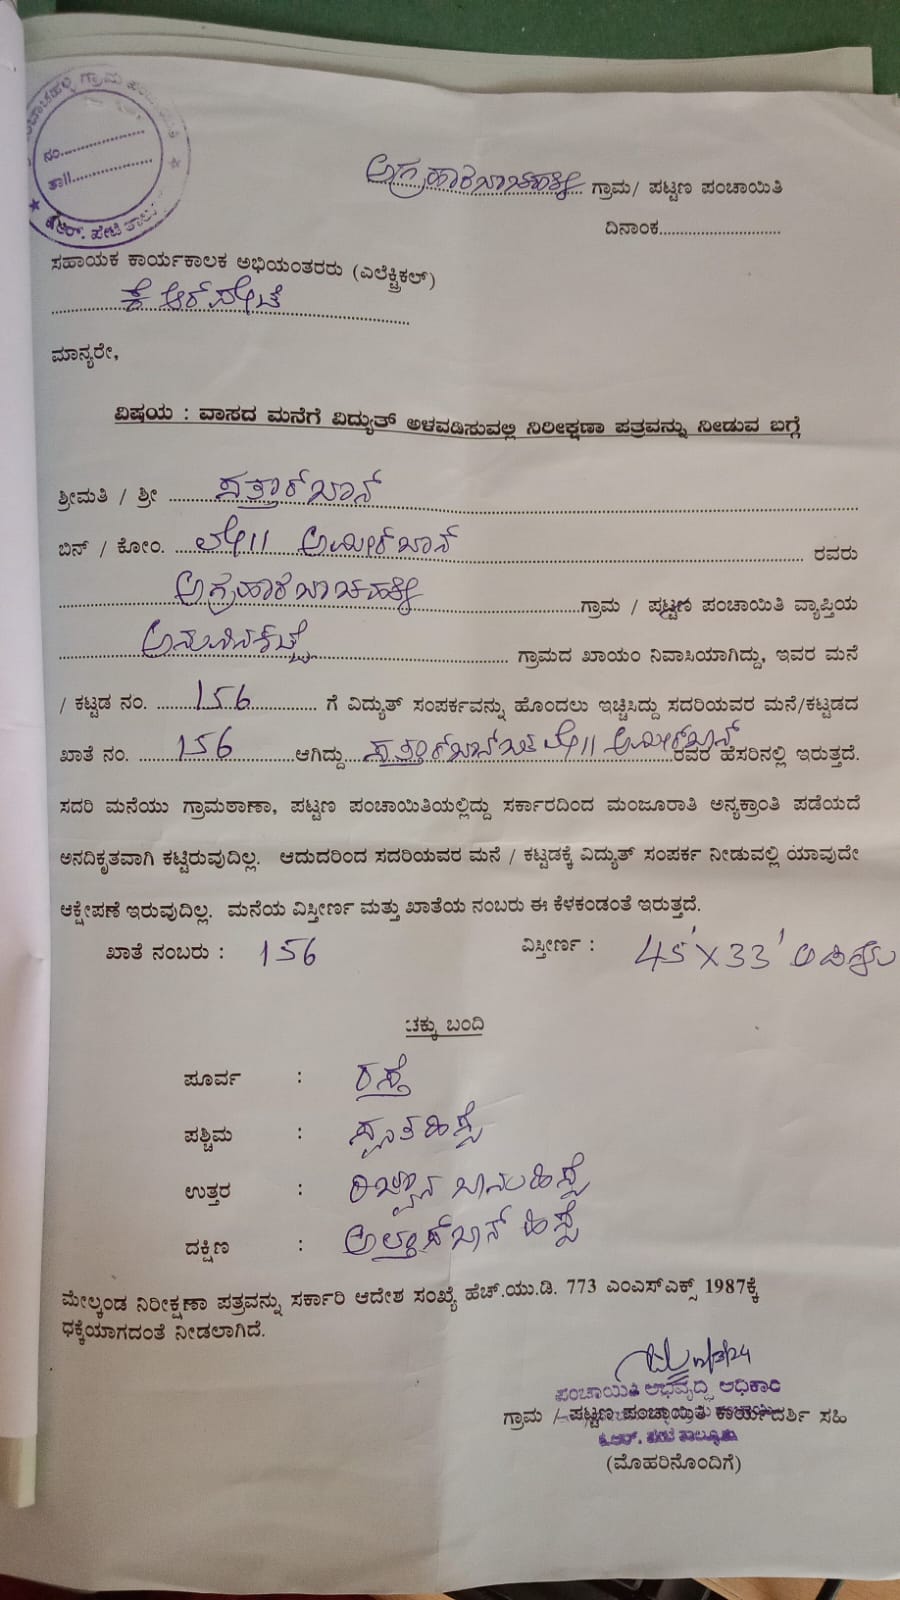 ಗ್ರಾಮ ಪಂಚಾಯಿತಿ
ನಂ....................
ತಾ||....................
ಕೆ.ಆರ್. ಪೇಟೆ ತಾಲ್ಲೂಕು
ಅಗ್ರಹಾರಬಾಚಹಳ್ಳಿ ಗ್ರಾಮ/ ಪಟ್ಟಣ ಪಂಚಾಯಿತಿ
ದಿನಾಂಕ............................
ಸಹಾಯಕ ಕಾರ್ಯಕಾಲಕ ಅಭಿಯಂತರರು (ಎಲೆಕ್ಟ್ರಿಕಲ್)
ಕೆ ಆರ್ ಪೇಟೆ
ಮಾನ್ಯರೇ,
ವಿಷಯ : ವಾಸದ ಮನೆಗೆ ವಿದ್ಯುತ್ ಅಳವಡಿಸುವಲ್ಲಿ ನಿರೀಕ್ಷಣಾ ಪತ್ರವನ್ನು ನೀಡುವ ಬಗ್ಗೆ
ಶ್ರೀಮತಿ / ಶ್ರೀ ಸತ್ತಾರ್ ಖಾನ್
ಬಿನ್ / ಕೋಂ. ಲೇ|| ಅಮೀರ್ ಖಾನ್ ರವರು
ಅಗ್ರಹಾರಬಾಚಹಳ್ಳಿ ಗ್ರಾಮ / ಪಟ್ಟಣ ಪಂಚಾಯಿತಿ ವ್ಯಾಪ್ತಿಯ
ಗ್ರಾಮದ ಖಾಯಂ ನಿವಾಸಿಯಾಗಿದ್ದು, ಇವರ ಮನೆ
/ ಕಟ್ಟಡ ನಂ. 156 ಗೆ ವಿದ್ಯುತ್ ಸಂಪರ್ಕವನ್ನು ಹೊಂದಲು ಇಚ್ಚಿಸಿದ್ದು ಸದರಿಯವರ ಮನೆ/ಕಟ್ಟಡದ
ಖಾತೆ ನಂ. 156 ಆಗಿದ್ದು ಸತ್ತಾರ್ ಖಾನ್ ಬಿನ್ ಲೇ|| ಅಮೀರ್ ಖಾನ್ ರವರ ಹೆಸರಿನಲ್ಲಿ ಇರುತ್ತದೆ.
ಸದರಿ ಮನೆಯು ಗ್ರಾಮಠಾಣಾ, ಪಟ್ಟಣ ಪಂಚಾಯಿತಿಯಲ್ಲಿದ್ದು ಸರ್ಕಾರದಿಂದ ಮಂಜೂರಾತಿ ಅನ್ಯಕ್ರಾಂತಿ ಪಡೆಯದೆ
ಅನದಿಕೃತವಾಗಿ ಕಟ್ಟಿರುವುದಿಲ್ಲ. ಆದುದರಿಂದ ಸದರಿಯವರ ಮನೆ / ಕಟ್ಟಡಕ್ಕೆ ವಿದ್ಯುತ್ ಸಂಪರ್ಕ ನೀಡುವಲ್ಲಿ ಯಾವುದೇ
ಆಕ್ಷೇಪಣೆ ಇರುವುದಿಲ್ಲ. ಮನೆಯ ವಿಸ್ತೀರ್ಣ ಮತ್ತು ಖಾತೆಯ ನಂಬರು ಈ ಕೆಳಕಂಡಂತೆ ಇರುತ್ತದೆ.
ಖಾತೆ ನಂಬರು : 156 ವಿಸ್ತೀರ್ಣ : 45'X33' ಅಡಿಗಳು
ಚಕ್ಕು ಬಂದಿ
ಪೂರ್ವ : ರಸ್ತೆ
ಪಶ್ಚಿಮ : ಸ್ವಂತ ಹಿಸ್ಸೆ
ಉತ್ತರ : ರಿಜ್ವಾನ ಬಾನು ಹಿಸ್ಸೆ
ದಕ್ಷಿಣ : ಅಲ್ತಾಫ್ ಖಾನ್ ಹಿಸ್ಸೆ
ಮೇಲ್ಕಂಡ ನಿರೀಕ್ಷಣಾ ಪತ್ರವನ್ನು ಸರ್ಕಾರಿ ಆದೇಶ ಸಂಖ್ಯೆ ಹೆಚ್.ಯು.ಡಿ. 773 ಎಂಎಸ್ಎಕ್ಸ್ 1987ಕ್ಕೆ
ಧಕ್ಕೆಯಾಗದಂತೆ ನೀಡಲಾಗಿದೆ.
ಪಂಚಾಯಿತಿ ಅಭಿವೃದ್ಧಿ ಅಧಿಕಾರಿ
ಗ್ರಾಮ / ಪಟ್ಟಣ ಪಂಚಾಯಿತಿ ಕಾರ್ಯದರ್ಶಿ ಸಹಿ
ಕೆ.ಆರ್. ಪೇಟೆ ತಾಲ್ಲೂಕು
(ಮೊಹರಿನೊಂದಿಗೆ)